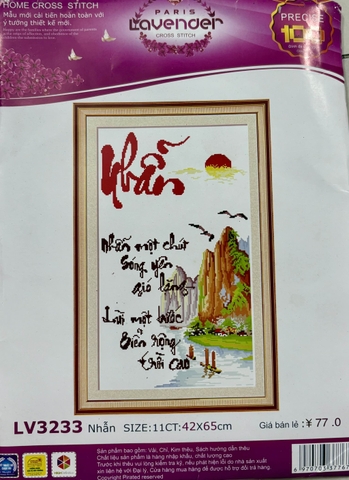 HOME CROSS STITCH
Mẫu mới cải tiến hoàn toàn với
ý tưởng thiết kế mới.
PARIS
Lavender
CROSS STITCH
PRECISE
Nhẫn
Nhẫn một chút
Sóng yên
gió lặng
Lùi một bước
Biển rộng
trời cao
LV3233 Nhẫn SIZE:11CT:42X65cm Giá bán lẻ :¥ 77.0
Sản phẩm bao gồm: Vải, Chỉ, Kim thêu, Sách hướng dẫn thêu.
Chất liệu sản phẩm là hàng nhập khẩu, chất lượng cao
Trước khi thêu vui lòng kiểm tra kỹ, nếu phát hiện lỗi do nhà sản xuất
xin liên hệ với Đại lý, Cửa hàng mua hàng để được hỗ trợ đổi trả hàng.
Copyright Pirated reserved